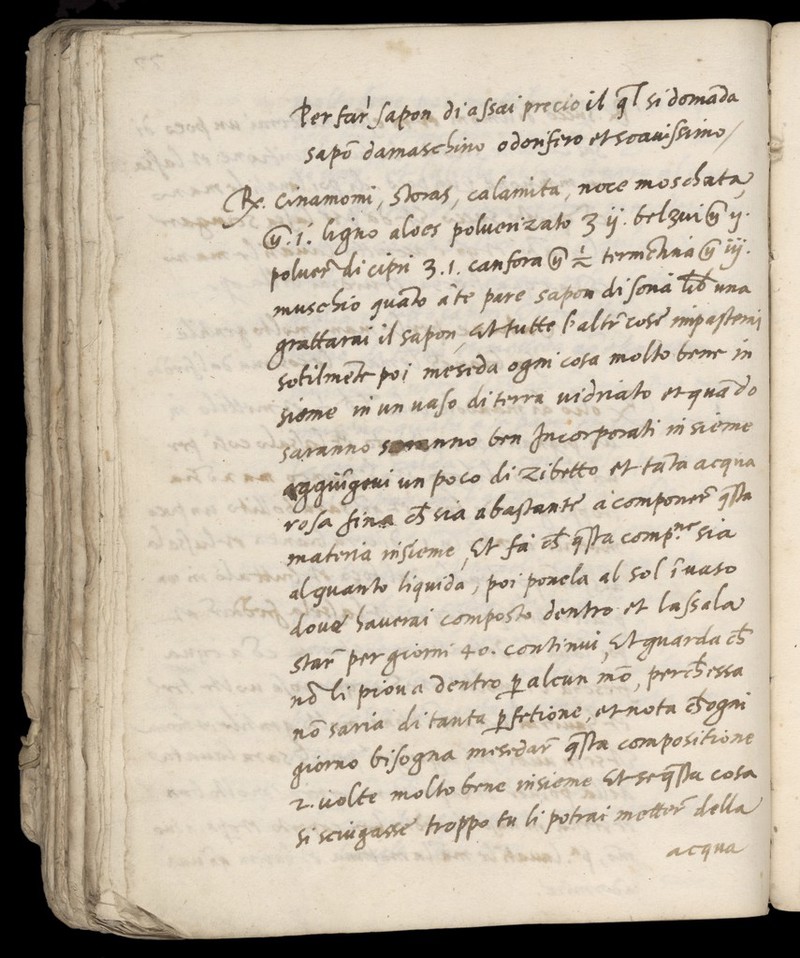 Per far sapon di assai precio il ql si domãda
sapõ damaschino odorifero et soavissimo /
Rx. Cinamomi, storas, calamita, noce moschata,
℥. i. ligno aloes polverizato ʒ ij. belzui ℥ ij.
polver di cipri ʒ. 1. canfora ℥ ½ termẽtina ℥ iij.
muschio quãto à te pare sapon di soria lib una
grattarai il sapon, Et tutte l'altre cose impasterai
sotilmẽte poi meseda ogni cosa molto bene in
sieme in un vaso di terra vidriato et quãdo
saranno ben Incorporati insieme
aggiũgevi un poco di zibetto et tãta acqua
rosa fina ch sia abastante à componer qsta
materia insieme, Et fà ch qsta comp.ne sia
alquanto liquida, poi ponela al sol ĩ vaso
dove haverai composto dentro et lassala
star per giorni 40. continui, Et guarda ch
nõ li piova dentro p alcun mõ, perch essa
nõ saria di tanta pfetione, et nota ch ogni
giorno bisogna mesedar qsta compositione
2. volte molto bene insieme Et se qsta cosa
si sciugasse troppo tu li potrai metter della
acqua